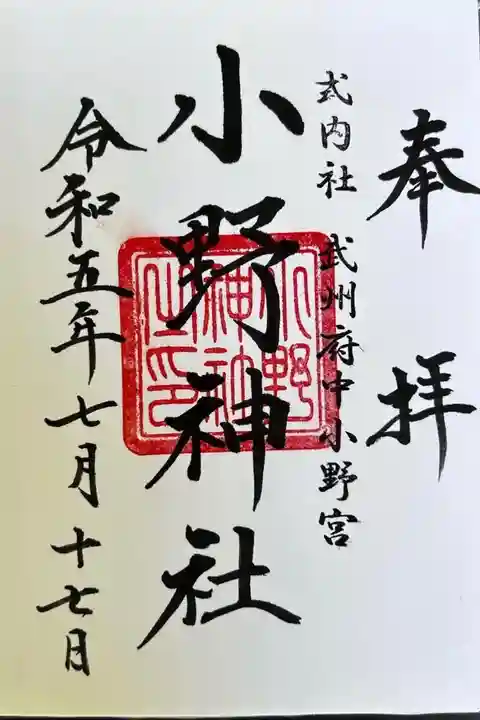 奉拝
式内社 武州府中小野宮
小野神社
小野神社之印
令和五年七月十七日